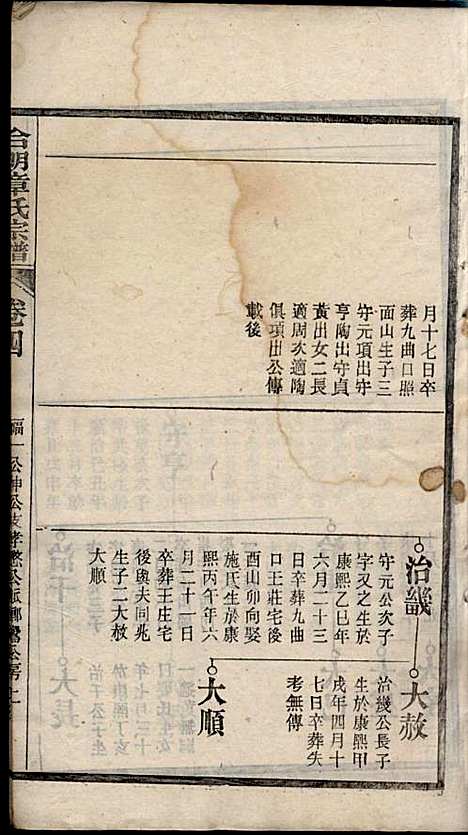 月十七日卒
葬九曲口照
面山生子三
守元項出守
亨陶出守貞
黃出女二長
適周次適陶
俱項出公傳
載後
治畿
守元公次子
字又之生於
康熙乙巳年
六月二十三
日卒葬九曲
口王莊宅後
酉山卯向娶
施氏生於康
熙丙午年六
月二十一日
卒葬王庄宅
後與夫同兆
生子二大赦
大順
大赦
治畿公長子
生於康熙甲
戌年四月十
七日卒葬失
考無傳
大順
章氏宗譜
卷四